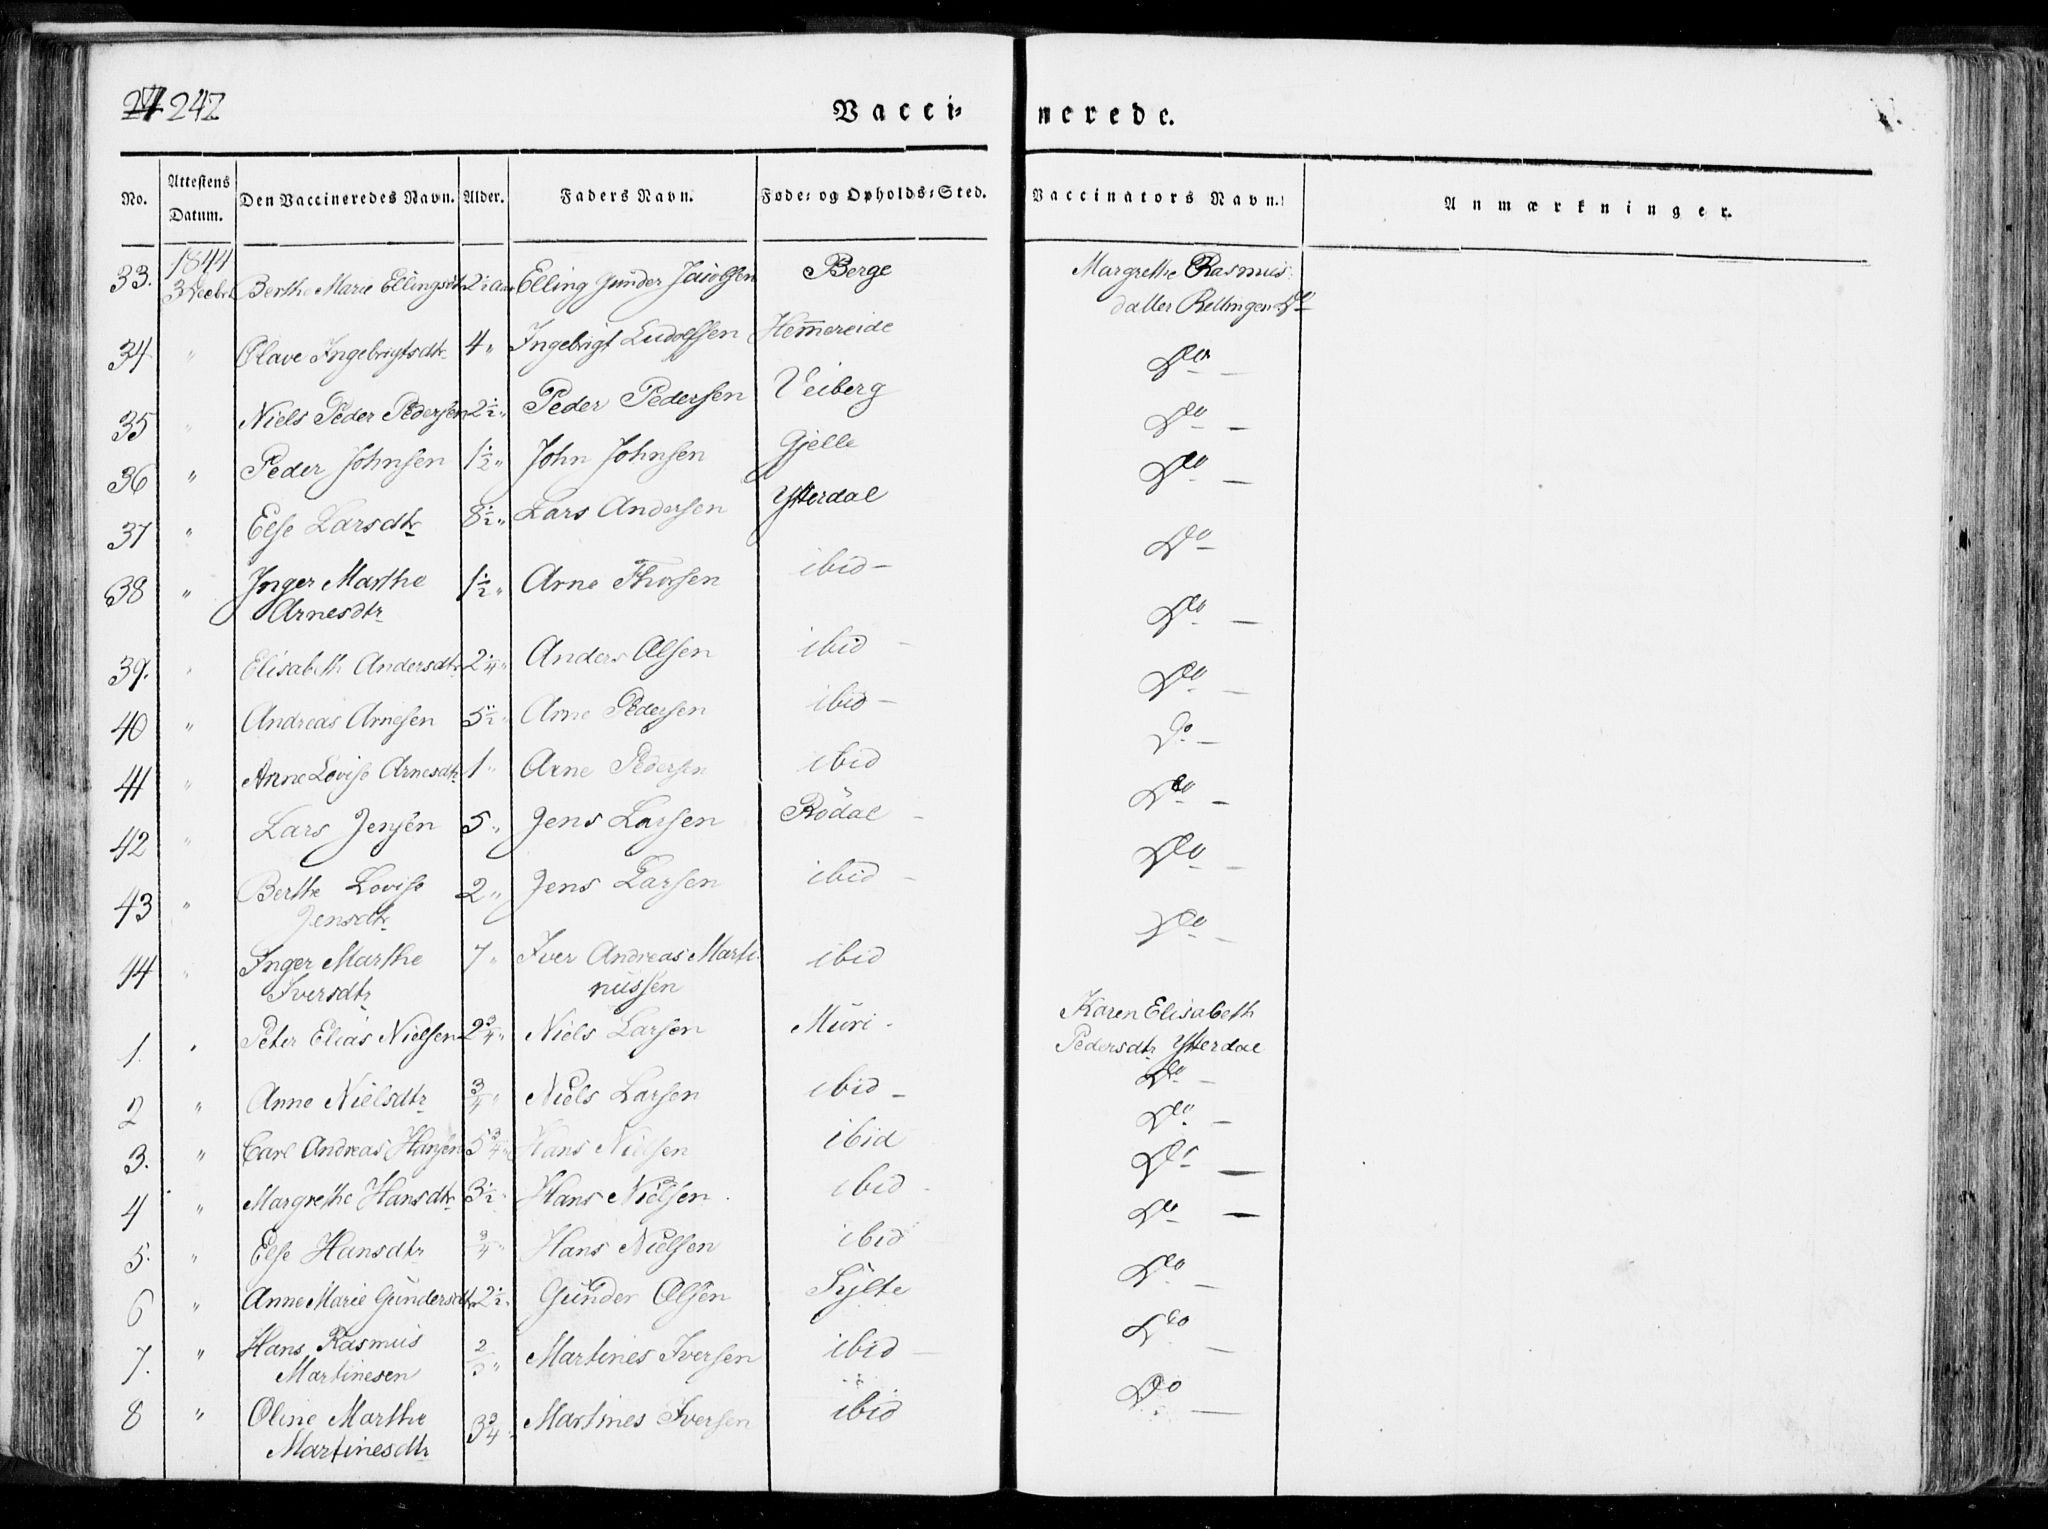 242
Vacci- nerede.
No. Attestens Datum. Den Vaccineredes Navn. Alder. Faders Navn. Føde- og Opholds-Sted. Vaccinators Navn. Anmærkninger.
1844
33. 3 Decbr Berthe Marie Ellingsdtr 2½ Aar Elling Gunder Berge Margrethe Rasmus
datter Rellingen Do
34 " Olave Ingebrigtsdtr 4 " Ingebrigt Ludolfsen Hem̄ereide Do —
35 " Niels Peder Pedersen 2½ " Peder Pedersen Veiberg Do —
36 " Peder Johnsen 1½ " John Johnsen Gjelle Do —
37 " Else Larsdtr 8½ " Lars Andersen Ytterdal Do —
38 " Inger Marthe 1½ " Arne Thorsen ibid — Do —
Arnesdtr
39. " Elisabeth Andersdtr 2¼ " Anders Olsen ibid — Do —
40 " Andreas Arnesen 5½ " Arne Pedersen ibid — Do —
41 " Anne Lovise Arnesdtr 1 " Arne Pedersen ibid Do —
42 " Lars Jensen 5 " Jens Larsen Rödal — Do —
43 " Berthe Lovise 2 " Jens Larsen ibid — Do —
Jensdtr
44 " Inger Marthe 7 " Iver Andreas Marti- ibid Do —
Iversdtr nussen
1. " Peter Elias Nielsen 2¾ " Niels Larsen Muri - Karen Elisabeth
Pedersdtr Ytterdal
2 " Anne Nielsdtr ¾ " Niels Larsen ibid — Do —
3. " Carl Andreas Hansen 5¾ " Hans Nielsen ibid Do —
4 " Margrethe Hansdtr 3½ " Hans Nielsen ibid - Do —
5. " Else Hansdtr ¾ " Hans Nielsen ibid Do —
6 " Anne Marie Gundersdtr 2½ " Gunder Olsen Sylte Do —
7. " Hans Rasmus ⅔ " Martines Iversen ibid — Do —
Martinesen
8 " Oline Marthe 3¾ " Martines Iversen ibid Do —
Martinesdtr